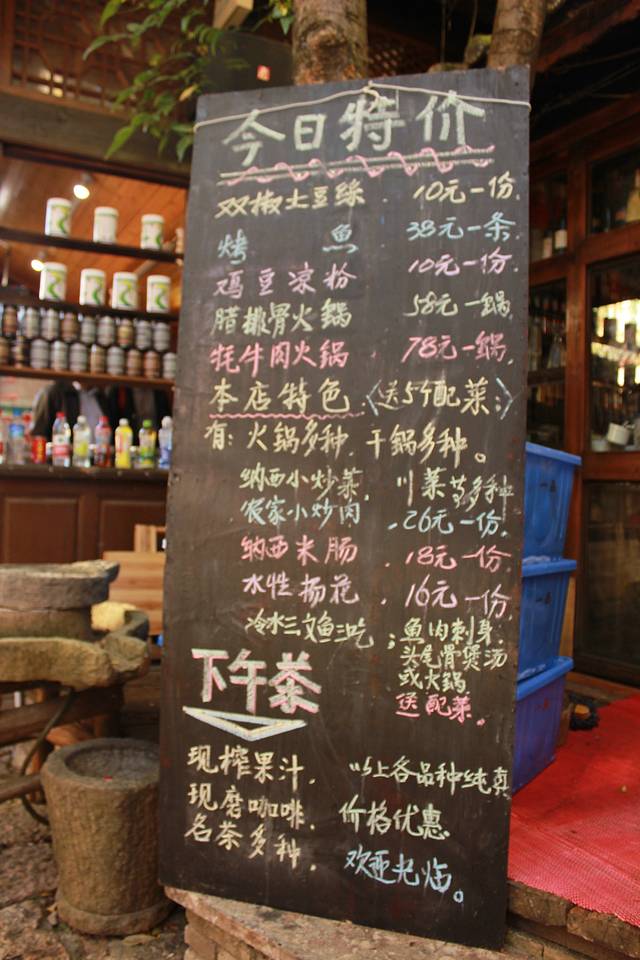 今日特价
双椒土豆丝. 10元一份.
烤 鱼 38元一条.
鸡豆凉粉 10元一份.
腊排骨火锅 58元一锅.
牦牛肉火锅 78元一锅.
本店特色.〈送5个配菜:〉
有: 火锅多种. 干锅多种。
纳西小炒菜. 川菜等多种
农家小炒肉 .26元一份.
纳西米肠 .18元一份.
水性杨花 .16元一份.
冷水三文鱼三吃;鱼肉刺身.
头尾骨煲汤
或火锅
送配菜。
下午茶
现榨果汁.
现磨咖啡.
名茶多种.
以上各品种纯真
价格优惠.
欢迎光临。